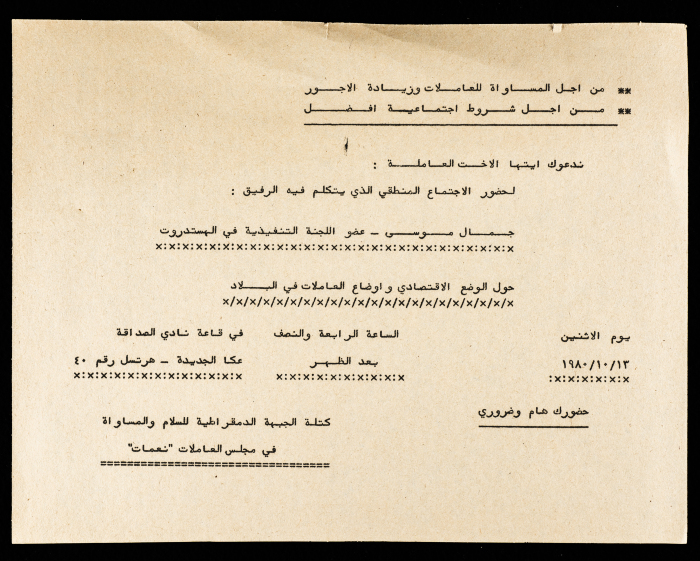 ** من اجل المساواة للعاملات وزيادة الاجور
** من اجل شروط اجتماعية افضل
ندعوك ايتها الاخت العاملة :
لحضور الاجتماع المنطقي الذي يتكلم فيه الرفيق :
جمال موسى - عضو اللجنة التنفيذية في الهستدروت
x:x:x:x:x:x:x:x:x:x:x:x:x:x:x:x:x:x:x:x:x:x:x:x:x:x:x
حول الوضع الاقتصادي واوضاع العاملات في البلاد
x/x/x/x/x/x/x/x/x/x/x/x/x/x/x/x/x/x/x/x/x/x
يوم الاثنين الساعة الرابعة والنصف في قاعة نادي الصداقة
١٩٨٠/١٠/١٣ بعد الظهر عكا الجديدة - هرتسل رقم ٤٠
:x:x:x:x:x:x x:x:x:x:x:x:x:x:x:x x:x:x:x:x:x:x:x:x:x:x:x:x
حضورك هام وضروري
كتلة الجبهة الدمقراطية للسلام والمساواة
في مجلس العاملات "نعمات"
==================================